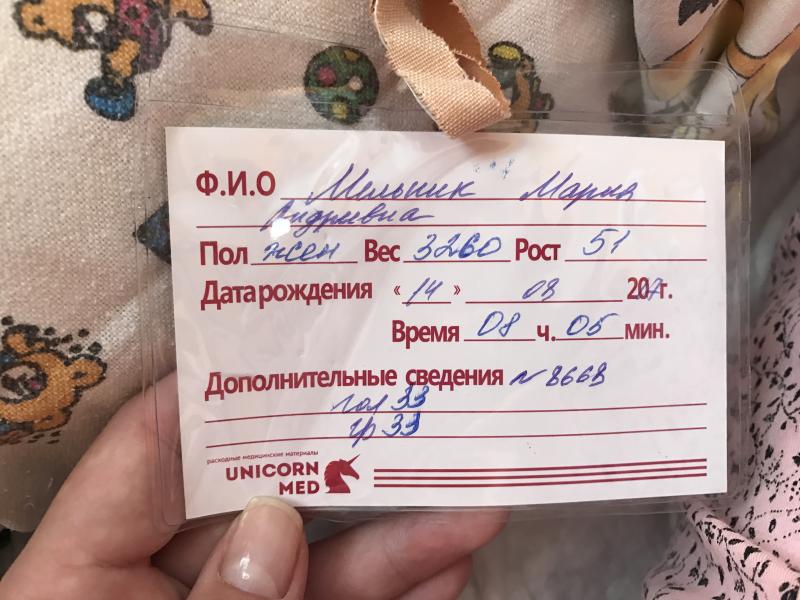 Ф.И.О Мельник Мария
Андреевна
Пол жен Вес 3260 Рост 51
Дата рождения « 14 » 08 2017г.
Время 08 ч. 05 мин.
Дополнительные сведения № 8668
гол 33
гр 33
расходные медицинские материалы
UNICORN
MED